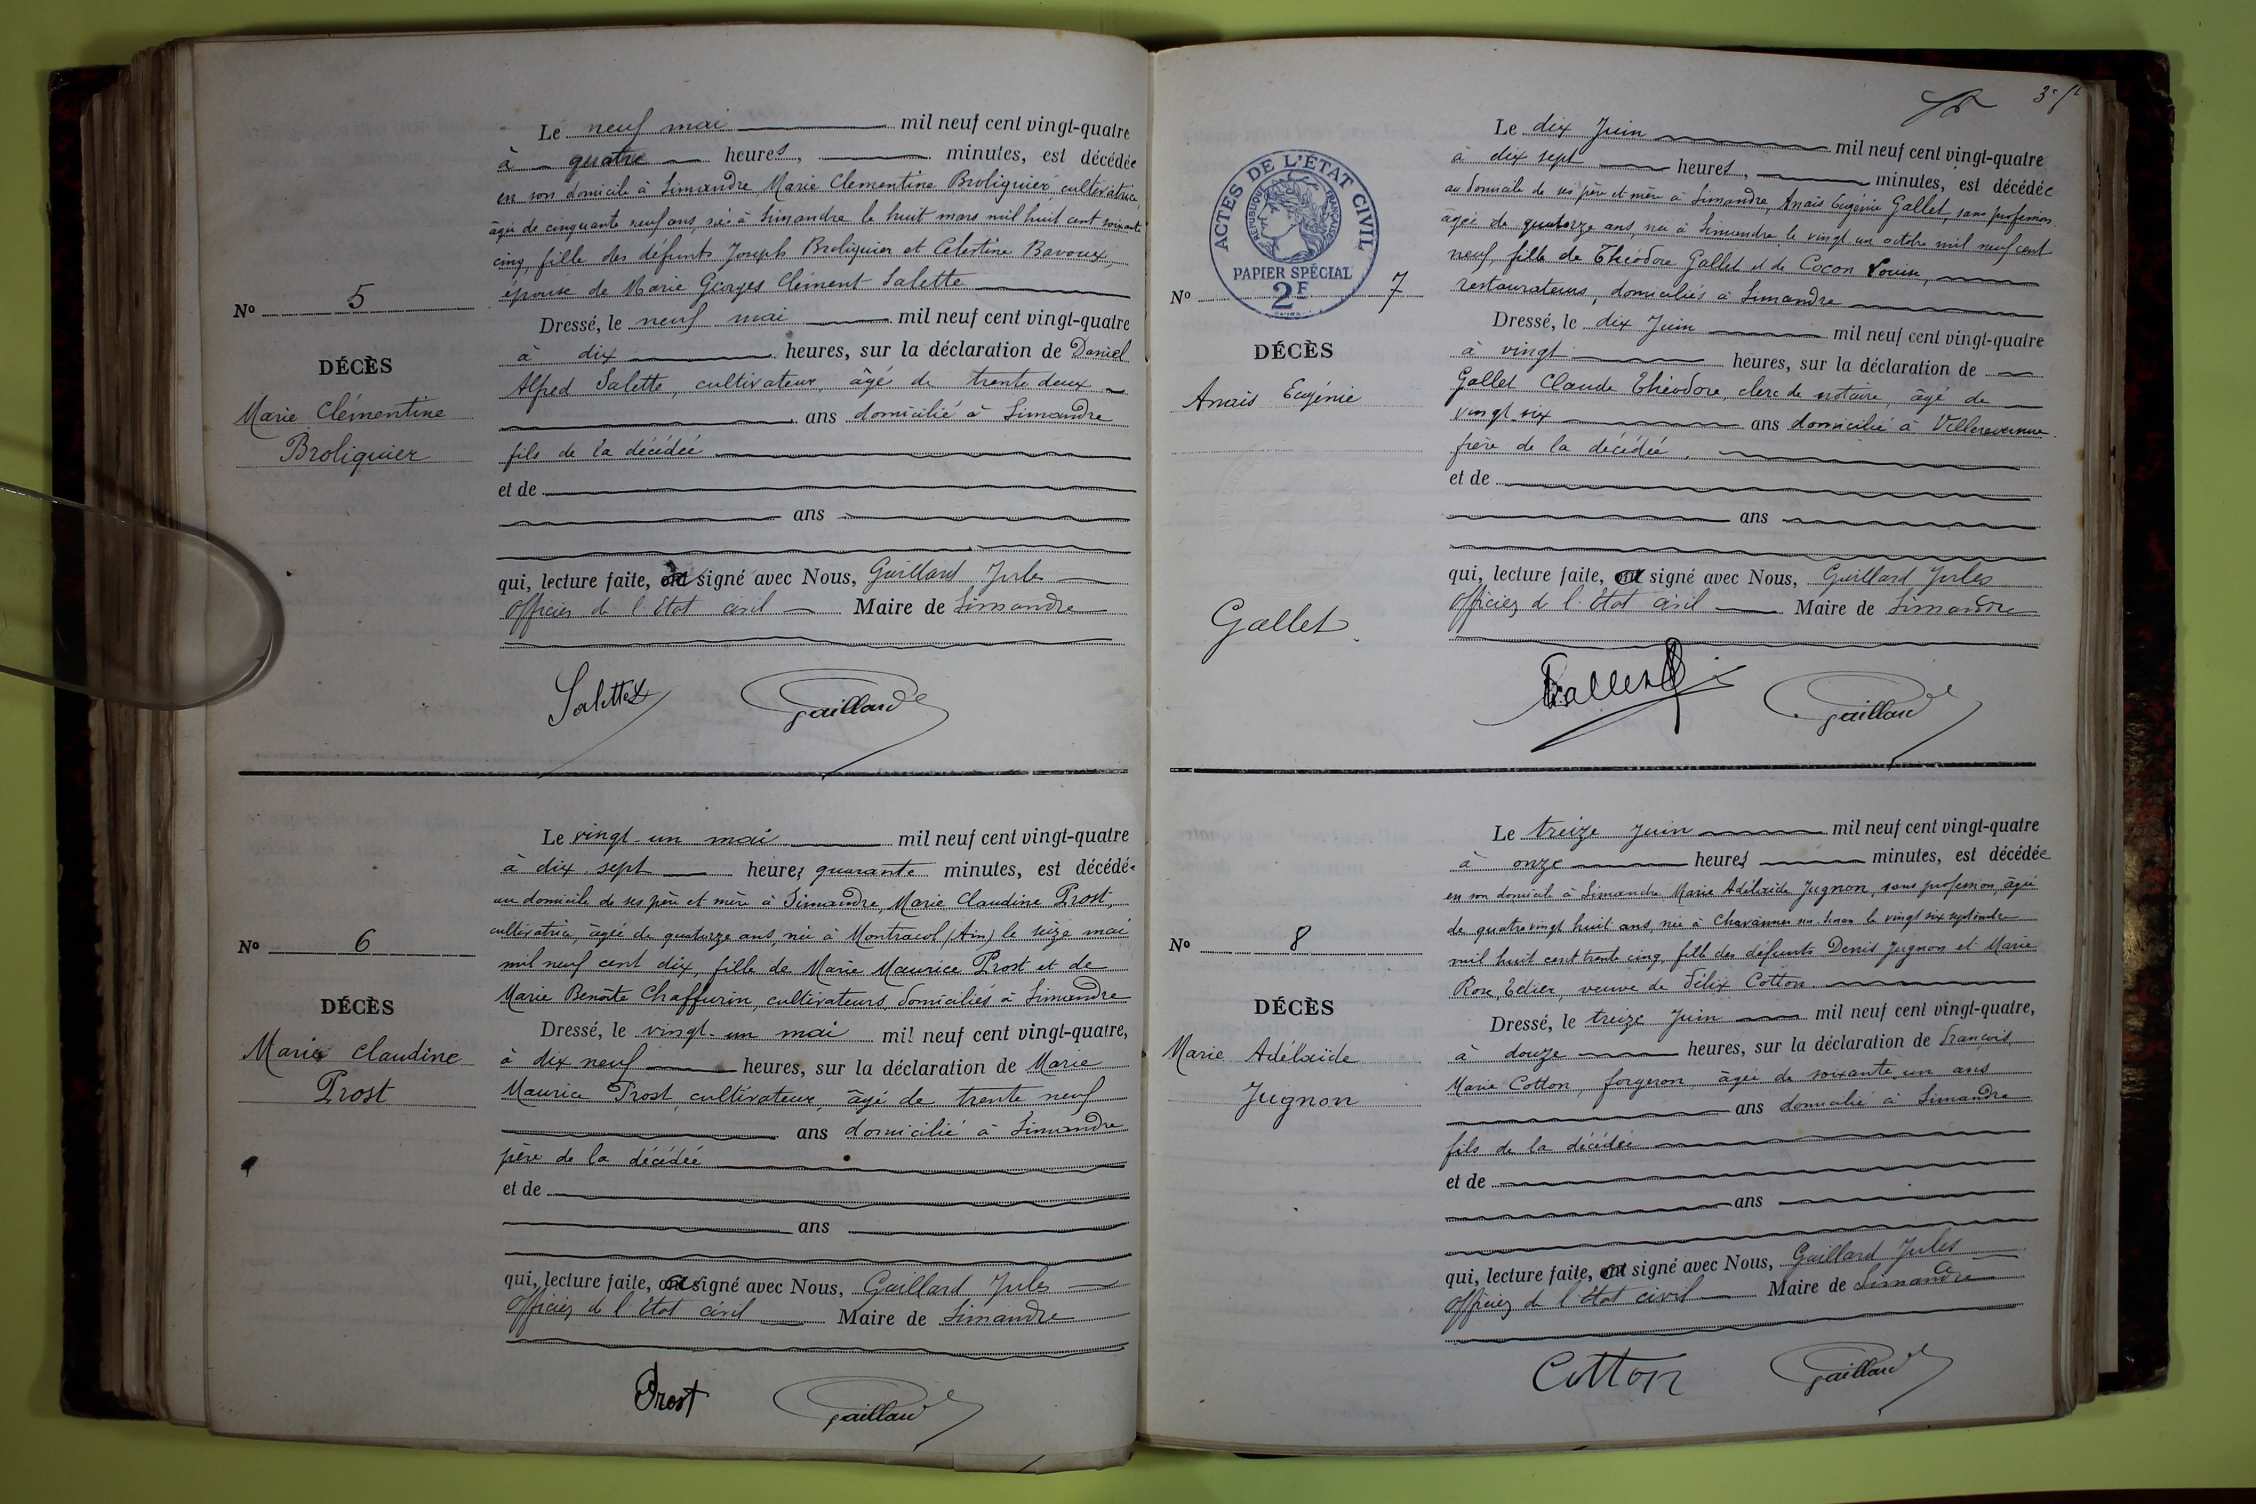 Le neuf mai mil neuf cent vingt-quatre
à quatre heures, minutes, est décédée
en son domicile à Simandre Marie Clementine Broliquier, cultivatrice,
âgée de cinquante neuf ans, née à Simandre le huit mars mil huit cent soixante
cinq, fille des défunts Joseph Broliquier et Celestine Bavoux,
épouse de Marie Georges Clément Salette
Nº 5
Dressé, le neuf mai mil neuf cent vingt-quatre
à dix heures, sur la déclaration de Daniel
DÉCÈS
Alfred Salette, cultivateur, âgé de trente deux
Marie Clémentine
ans domicilié à Simandre
Broliquier
fils de la décédée
et de
ans
qui, lecture faite, a signé avec Nous, Gaillard Jules
Officier de l'Etat civil Maire de Simandre
Salette
Gaillard
Le vingt un mai mil neuf cent vingt-quatre
à dix sept heures quarante minutes, est décédée
au domicile de ses père et mère à Simandre, Marie Claudine Prost,
cultivatrice, âgée de quatorze ans, née à Montracol (Ain) le seize mai
Nº 6
mil neuf cent dix, fille de Marie Maurice Prost et de
Marie Benoîte Chaffurin, cultivateurs domiciliés à Simandre
DÉCÈS
Dressé, le vingt-un mai mil neuf cent vingt-quatre,
Marie Claudine
à dix neuf heures, sur la déclaration de Marie
Prost
Maurice Prost, cultivateur, âgé de trente neuf
ans domicilié à Simandre
père de la décédée
et de
ans
qui, lecture faite, a signé avec Nous, Gaillard Jules
Officier de l'Etat civil Maire de Simandre
Prost
Gaillard
Le dix Juin mil neuf cent vingt-quatre
à dix sept heures, minutes, est décédée
au domicile de ses père et mère à Simandre, Anais Eugénie Gallet, sans profession
âgée de quatorze ans, née à Simandre le vingt un octobre mil neuf cent
neuf, fille de Théodore Gallet et de Cocon Louise,
restaurateurs, domiciliés à Simandre
ACTES DE L'ÉTAT CIVIL
RÉPUBLIQUE FRANÇAISE
PAPIER SPÉCIAL
2F
Nº 7
Dressé, le dix Juin mil neuf cent vingt-quatre
DÉCÈS
à vingt heures, sur la déclaration de
Anais Eugénie
Gallet Claude Théodore, clerc de notaire, âgé de
vingt six ans domicilié à Villereversure
frère de la décédée,
et de
ans
qui, lecture faite, a signé avec Nous, Gaillard Jules
Gallet
Officier de l'Etat civil Maire de Simandre
Gallet
Gaillard
Le treize Juin mil neuf cent vingt-quatre
à onze heures minutes, est décédée
en son domicile à Simandre Marie Adélaïde Jugnon, sans profession, âgée
de quatre vingt huit ans, née à Chavannes sur Suran le vingt six septembre
Nº 8
mil huit cent trente cinq, fille des défunts Denis Jugnon et Marie
Rose, veuve de Félix Cotton.
DÉCÈS
Dressé, le treize Juin mil neuf cent vingt-quatre,
Marie Adélaïde
à douze heures, sur la déclaration de François
Jugnon
Marie Cotton, forgeron âgé de soixante un ans
ans domicilié à Simandre
fils de la décédée
et de
ans
qui, lecture faite, a signé avec Nous, Gaillard Jules
Officier de l'Etat civil Maire de Simandre
Cotton
Gaillard